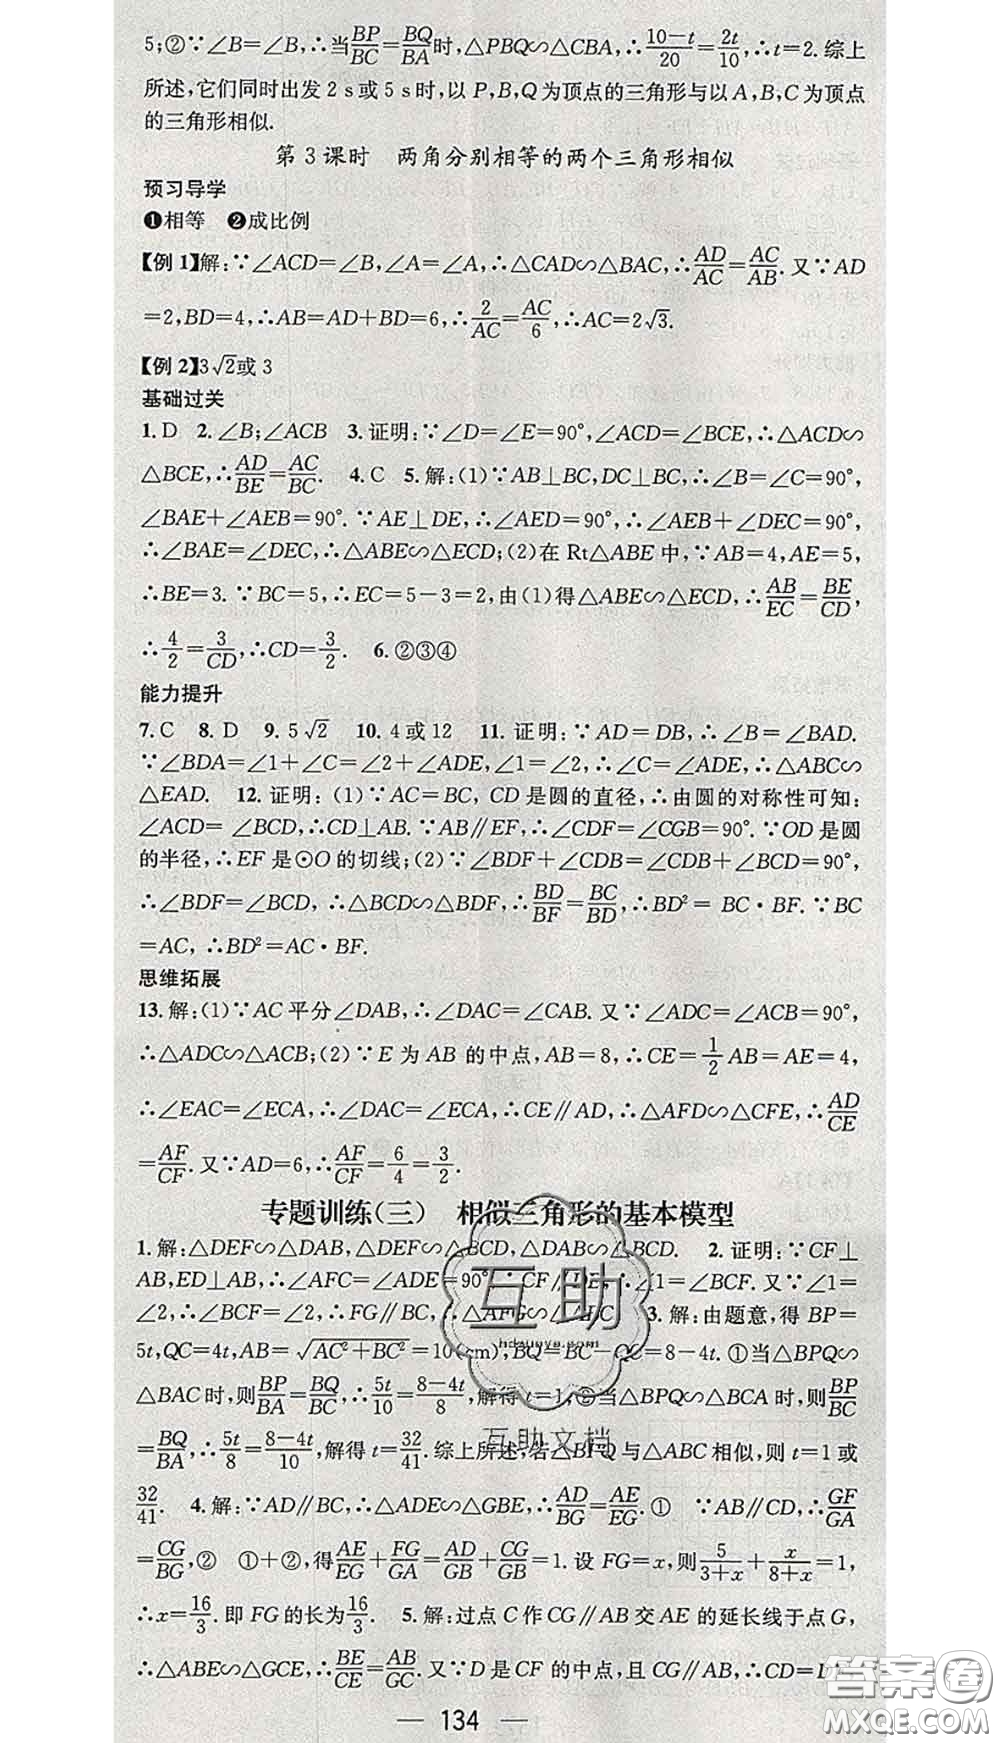 5;②∵∠B=∠B,∴当BP/BC=BQ/BA时,△PBQ∽△CBA,∴(10-t)/20=2t/10,∴t=2.综上
所述,它们同时出发 2 s 或 5 s 时,以 P,B,Q 为顶点的三角形与以 A,B,C 为顶点
的三角形相似.
第 3 课时 两角分别相等的两个三角形相似
预习导学
❶相等 ❷成比例
【例 1】解:∵∠ACD=∠B,∠A=∠A,∴△CAD∽△BAC,∴AD/AC=AC/AB.又∵AD
=2,BD=4,∴AB=AD+BD=6,∴2/AC=AC/6,∴AC=2√3.
【例 2】3√2或 3
基础过关
1. D 2. ∠B;∠ACB 3. 证明:∵∠D=∠E=90°,∠ACD=∠BCE,∴△ACD∽
△BCE,∴AD/BE=AC/BC. 4. C 5. 解:(1)∵AB⊥BC,DC⊥BC,∴∠B=∠C=90°,
∠BAE+∠AEB=90°.∵AE⊥DE,∴∠AED=90°,∴∠AEB+∠DEC=90°,
∴∠BAE=∠DEC,∴△ABE∽△ECD;(2)在 Rt△ABE 中,∵AB=4,AE=5,
∴BE=3.∵BC=5,∴EC=5-3=2,由(1)得△ABE∽△ECD,∴AB/EC=BE/CD,
∴4/2=3/CD,∴CD=3/2. 6. ②③④
能力提升
7. C 8. D 9. 5√2 10. 4 或 12 11. 证明:∵AD=DB,∴∠B=∠BAD.
∵∠BDA=∠1+∠C=∠2+∠ADE,∠1=∠2,∴∠C=∠ADE,∴△ABC∽
△EAD. 12. 证明:(1)∵AC=BC, CD 是圆的直径,∴由圆的对称性可知:
∠ACD= ∠BCD,∴CD⊥AB.∵AB∥EF,∴∠CDF=∠CGB=90°.∵OD 是圆
的半径,∴EF 是⊙O 的切线;(2)∵∠BDF+∠CDB=∠CDB+∠BCD=90°,
∴∠BDF=∠BCD, ∴△BCD∽△BDF, ∴BD/BF=BC/BD,∴BD²= BC·BF.∵BC
=AC, ∴BD²=AC·BF.
思维拓展
13. 解:(1)∵AC 平分∠DAB,∴∠DAC=∠CAB.又∵∠ADC=∠ACB=90°,
∴△ADC∽△ACB;(2)∵E 为 AB 的中点,AB=8,∴CE=1/2AB=AE=4,
∴∠EAC=∠ECA,∴∠DAC=∠ECA,∴CE∥AD,∴△AFD∽△CFE,∴AD/CE
=AF/CF.又∵AD=6,∴AF/CF=6/4=3/2.
专题训练(三) 相似三角形的基本模型
1. 解:△DEF∽△DAB,△DEF∽△BCD,△DAB∽△BCD. 2. 证明:∵CF⊥
AB,ED⊥AB,∴∠AFC=∠ADE=90°,∴CF∥DE,∴∠1=∠BCF.又∵∠1=
∠2,∴∠BCF=∠2,∴FG∥BC,∴△AFG∽ 3. 解:由题意,得 BP=
5t,QC=4t,AB=√(AC²+BC²)=10(cm),BQ=BC-QC=8-4t.①当△BPQ∽
△BAC 时,则BP/BA=BQ/BC,∴5t/10=(8-4t)/8,解得 t=1,②当△BPQ∽△BCA 时,则BP/BC
=BQ/BA,∴5t/8=(8-4t)/10,解得 t=32/41.综上所述,若△BPQ 与△ABC 相似,则 t=1 或
32/41. 4. 解:∵AD∥BC,∴△ADE∽△GBE,∴AD/BG=AE/EG.① ∵AB∥CD,∴GF/GA
=CG/BG,② ①+②,得AE/EG+FG/GA=AD/GB+CG/GB=1.设 FG=x,则5/(3+x)+x/(8+x)=1,
∴x=16/3.即 FG 的长为16/3. 5. 解:过点 C 作 CG∥AB 交 AE 的延长线于点 G,
∴△ABE∽△GCE,∴BE/CE=AB/GC.又∵D 是 CF 的中点,且 CG∥AB,∴CD=
— 134 —
互助
互助文档
答案圈
MXQE.COM